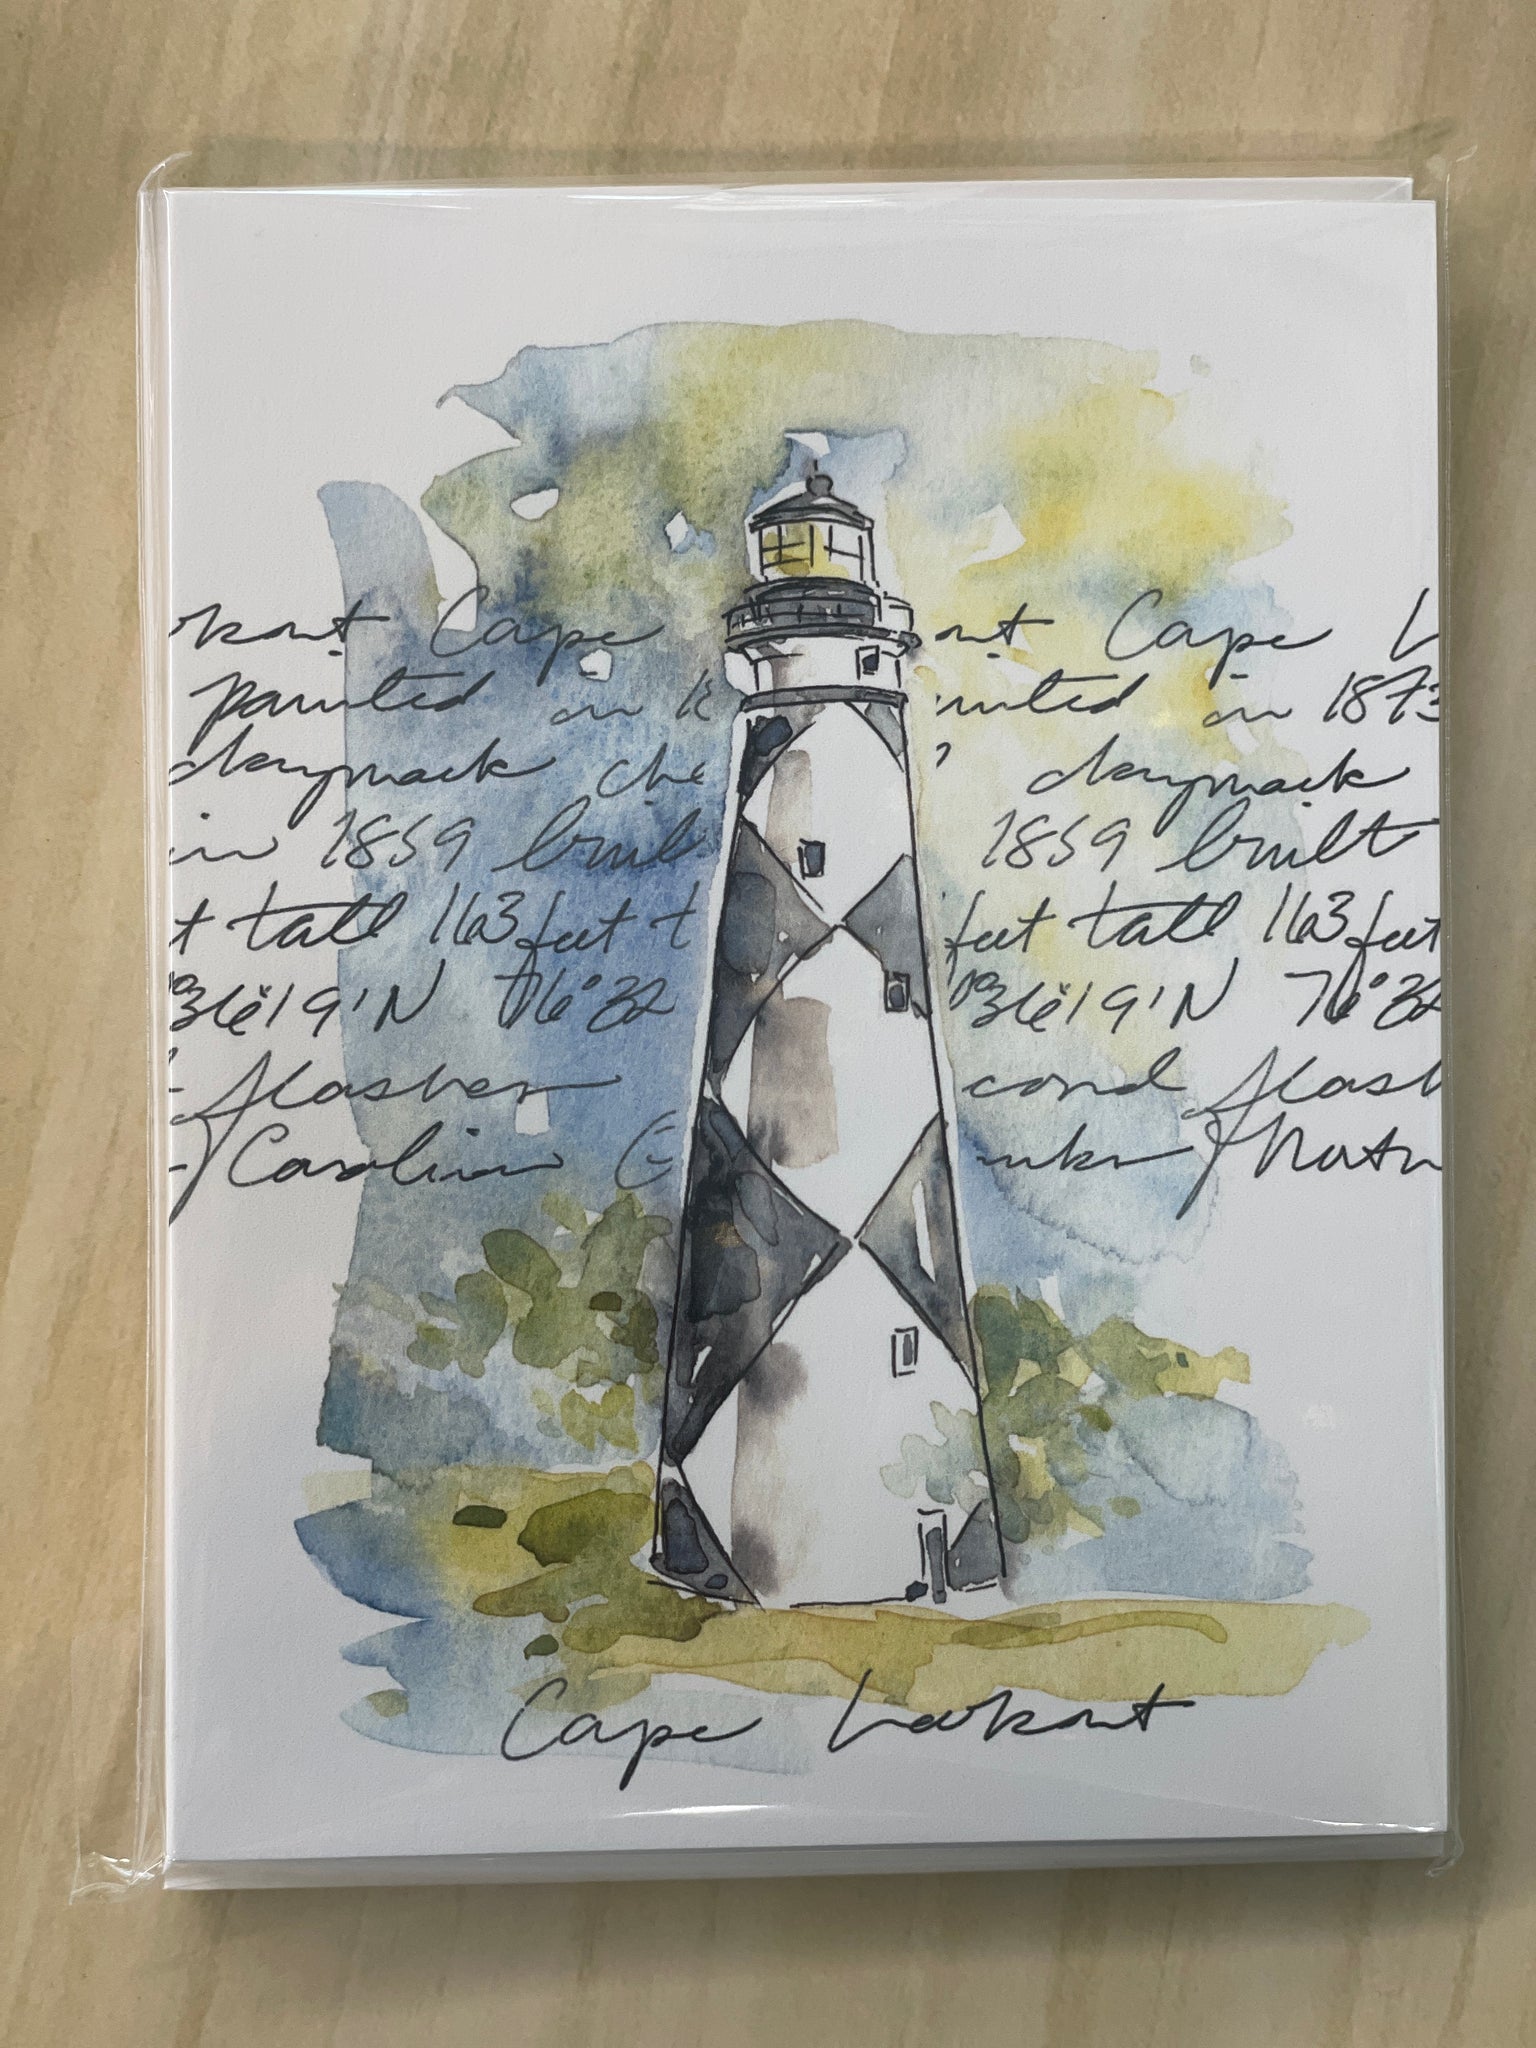 okout Cape out Cape L
painted in 18 inted in 1873
daymark che daymark
in 1859 buil 1859 built
t tall 163 feet t feet tall 163 feet
36'19'N 76°32 36'19'N 76°32
flasher cond flash
Carolina anks North
Cape Lookout